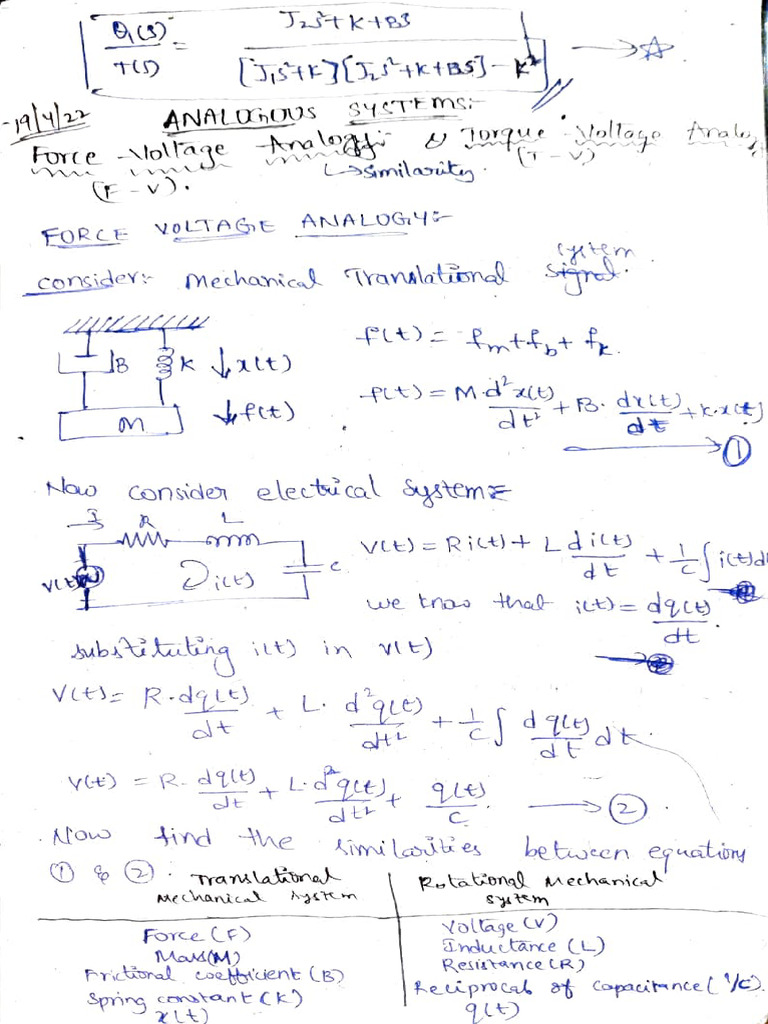 θ₁(s) / T(s) = J₂s²+K+BS / [J₁s²+K][J₂s²+K+BS] - K² → ☆
-19/4/22 ANALOGOUS SYSTEMS:-
Force -Voltage Analogy:- & Torque -Voltage Analo
(F-V). ↳similarity. (T-V)
FORCE VOLTAGE ANALOGY:-
system
consider:- Mechanical Translational signal.
B K ↓x(t) f(t) = fm+fb+fk.
M ↓f(t) f(t) = M.d²x(t)/dt² + B. dx(t)/dt + K.x(t)
→ ①
Now consider electrical system:-
I R L
v(t) i(t) c V(t) = Ri(t) + L di(t)/dt + 1/c ∫ i(t)d
we know that i(t) = dq(t)/dt.
substituting i(t) in v(t)
V(t) = R.dq(t)/dt + L. d²q(t)/dt² + 1/c ∫ dq(t)/dt dt.
V(t) = R. dq(t)/dt + L. d²q(t)/dt² + q(t)/c. → ②.
Now find the similarities between equations
① & ②.
Translational Mechanical system | Rotational Mechanical system
Force (F) | Voltage (V)
Mass(M) | Inductance (L)
Frictional coefficient (B) | Resistance (R)
Spring constant (K) | Reciprocal of capacitance (1/c).
x(t) | q(t)